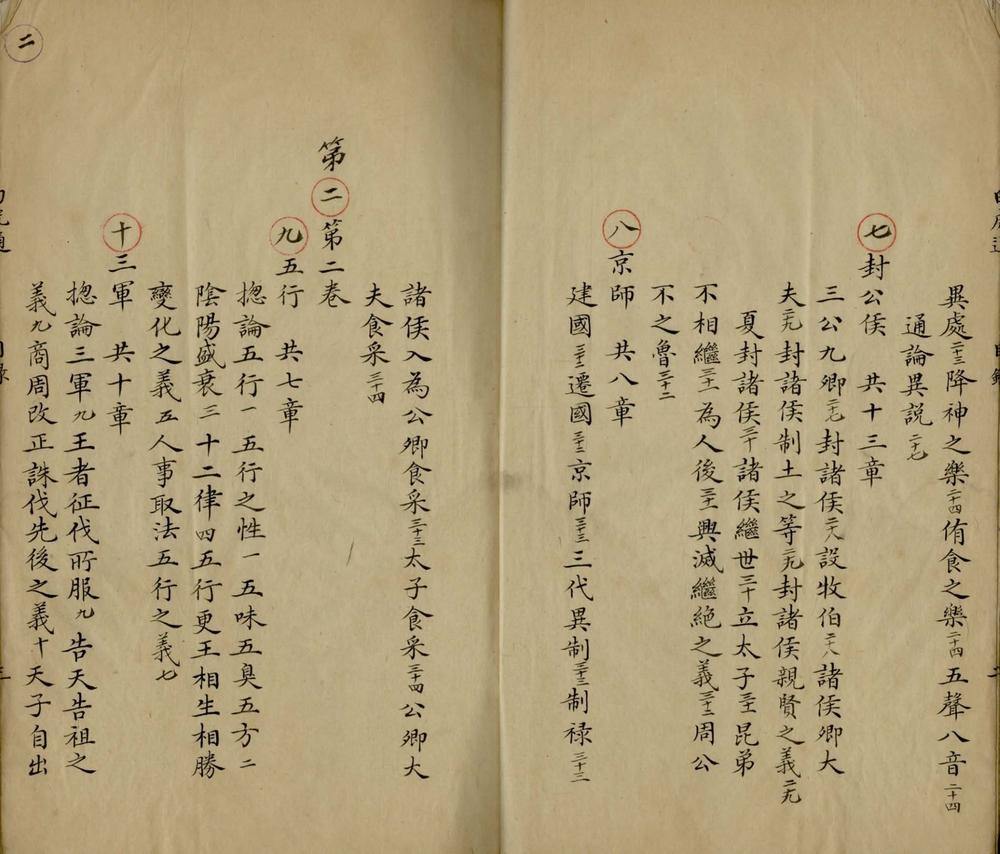 異處二十三降神之樂二十四侑食之樂二十四五聲八音二十四
通論異說二十七
七封公侯　共十三章
三公九卿二十七封諸侯二十八設牧伯二十八諸侯卿大
夫二十九封諸侯制土之等二十九封諸侯親賢之義二十九
夏封諸侯三十諸侯繼世三十立太子三十一昆弟
不相繼三十一為人後三十一興滅繼絕之義三十二周公
不之魯三十二
八京師　共八章
建國三十二遷國三十三京師三十三三代異制三十三制祿三十三
諸侯入為公卿食采三十三太子食采三十四公卿大
夫食采三十四
第二第二卷
九五行　共七章
揔論五行一五行之性一五味五臭五方二
陰陽盛衰三十二律四五行更王相生相勝
變化之義五人事取法五行之義七
十三軍　共十章
揔論三軍九王者征伐所服九告天告祖之
義九商周改正誅伐先後之義十天子自出
二